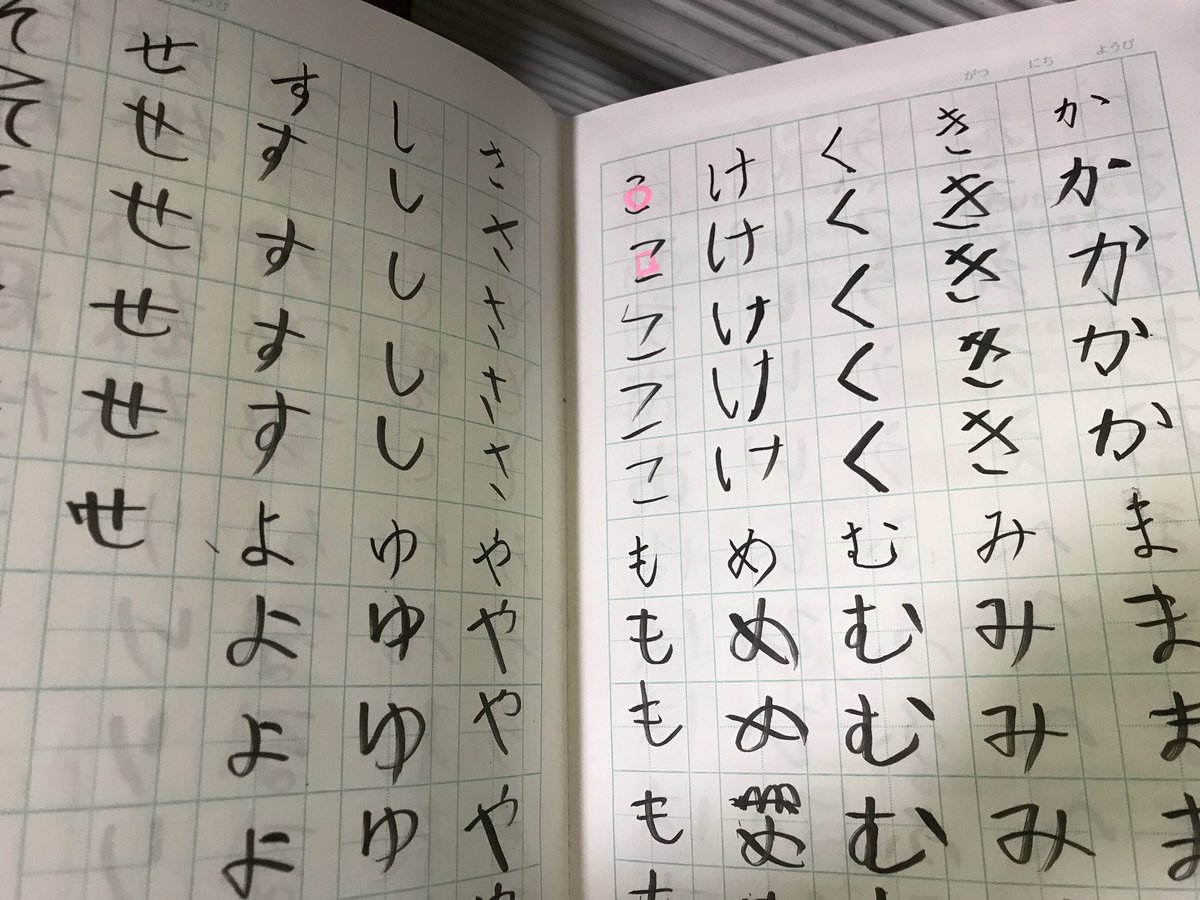 がつ にち ようび
かかかかかまままま
きききききみみみみ
くくくくくむむむむ
けけけけけめめめめ
こここここもももも
さささささやややや
しししししゆゆゆゆ
すすすすすよよよよ
せせせせせせ